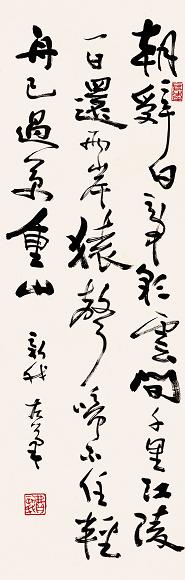 朝辭白帝彩雲間千里江陵
一日還兩岸猿聲啼不住輕
舟已過萬重山
新我左筆